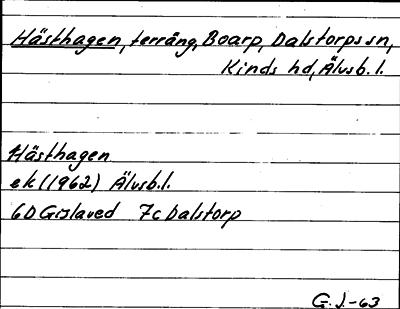 Hästhagen, terräng, Boarp, Dalstorps sn,
Kinds hd, Älvsb. l.
Hästhagen
ek (1962) Älvsb. l.
6D Gislaved 7c Dalstorp
G. J. -63